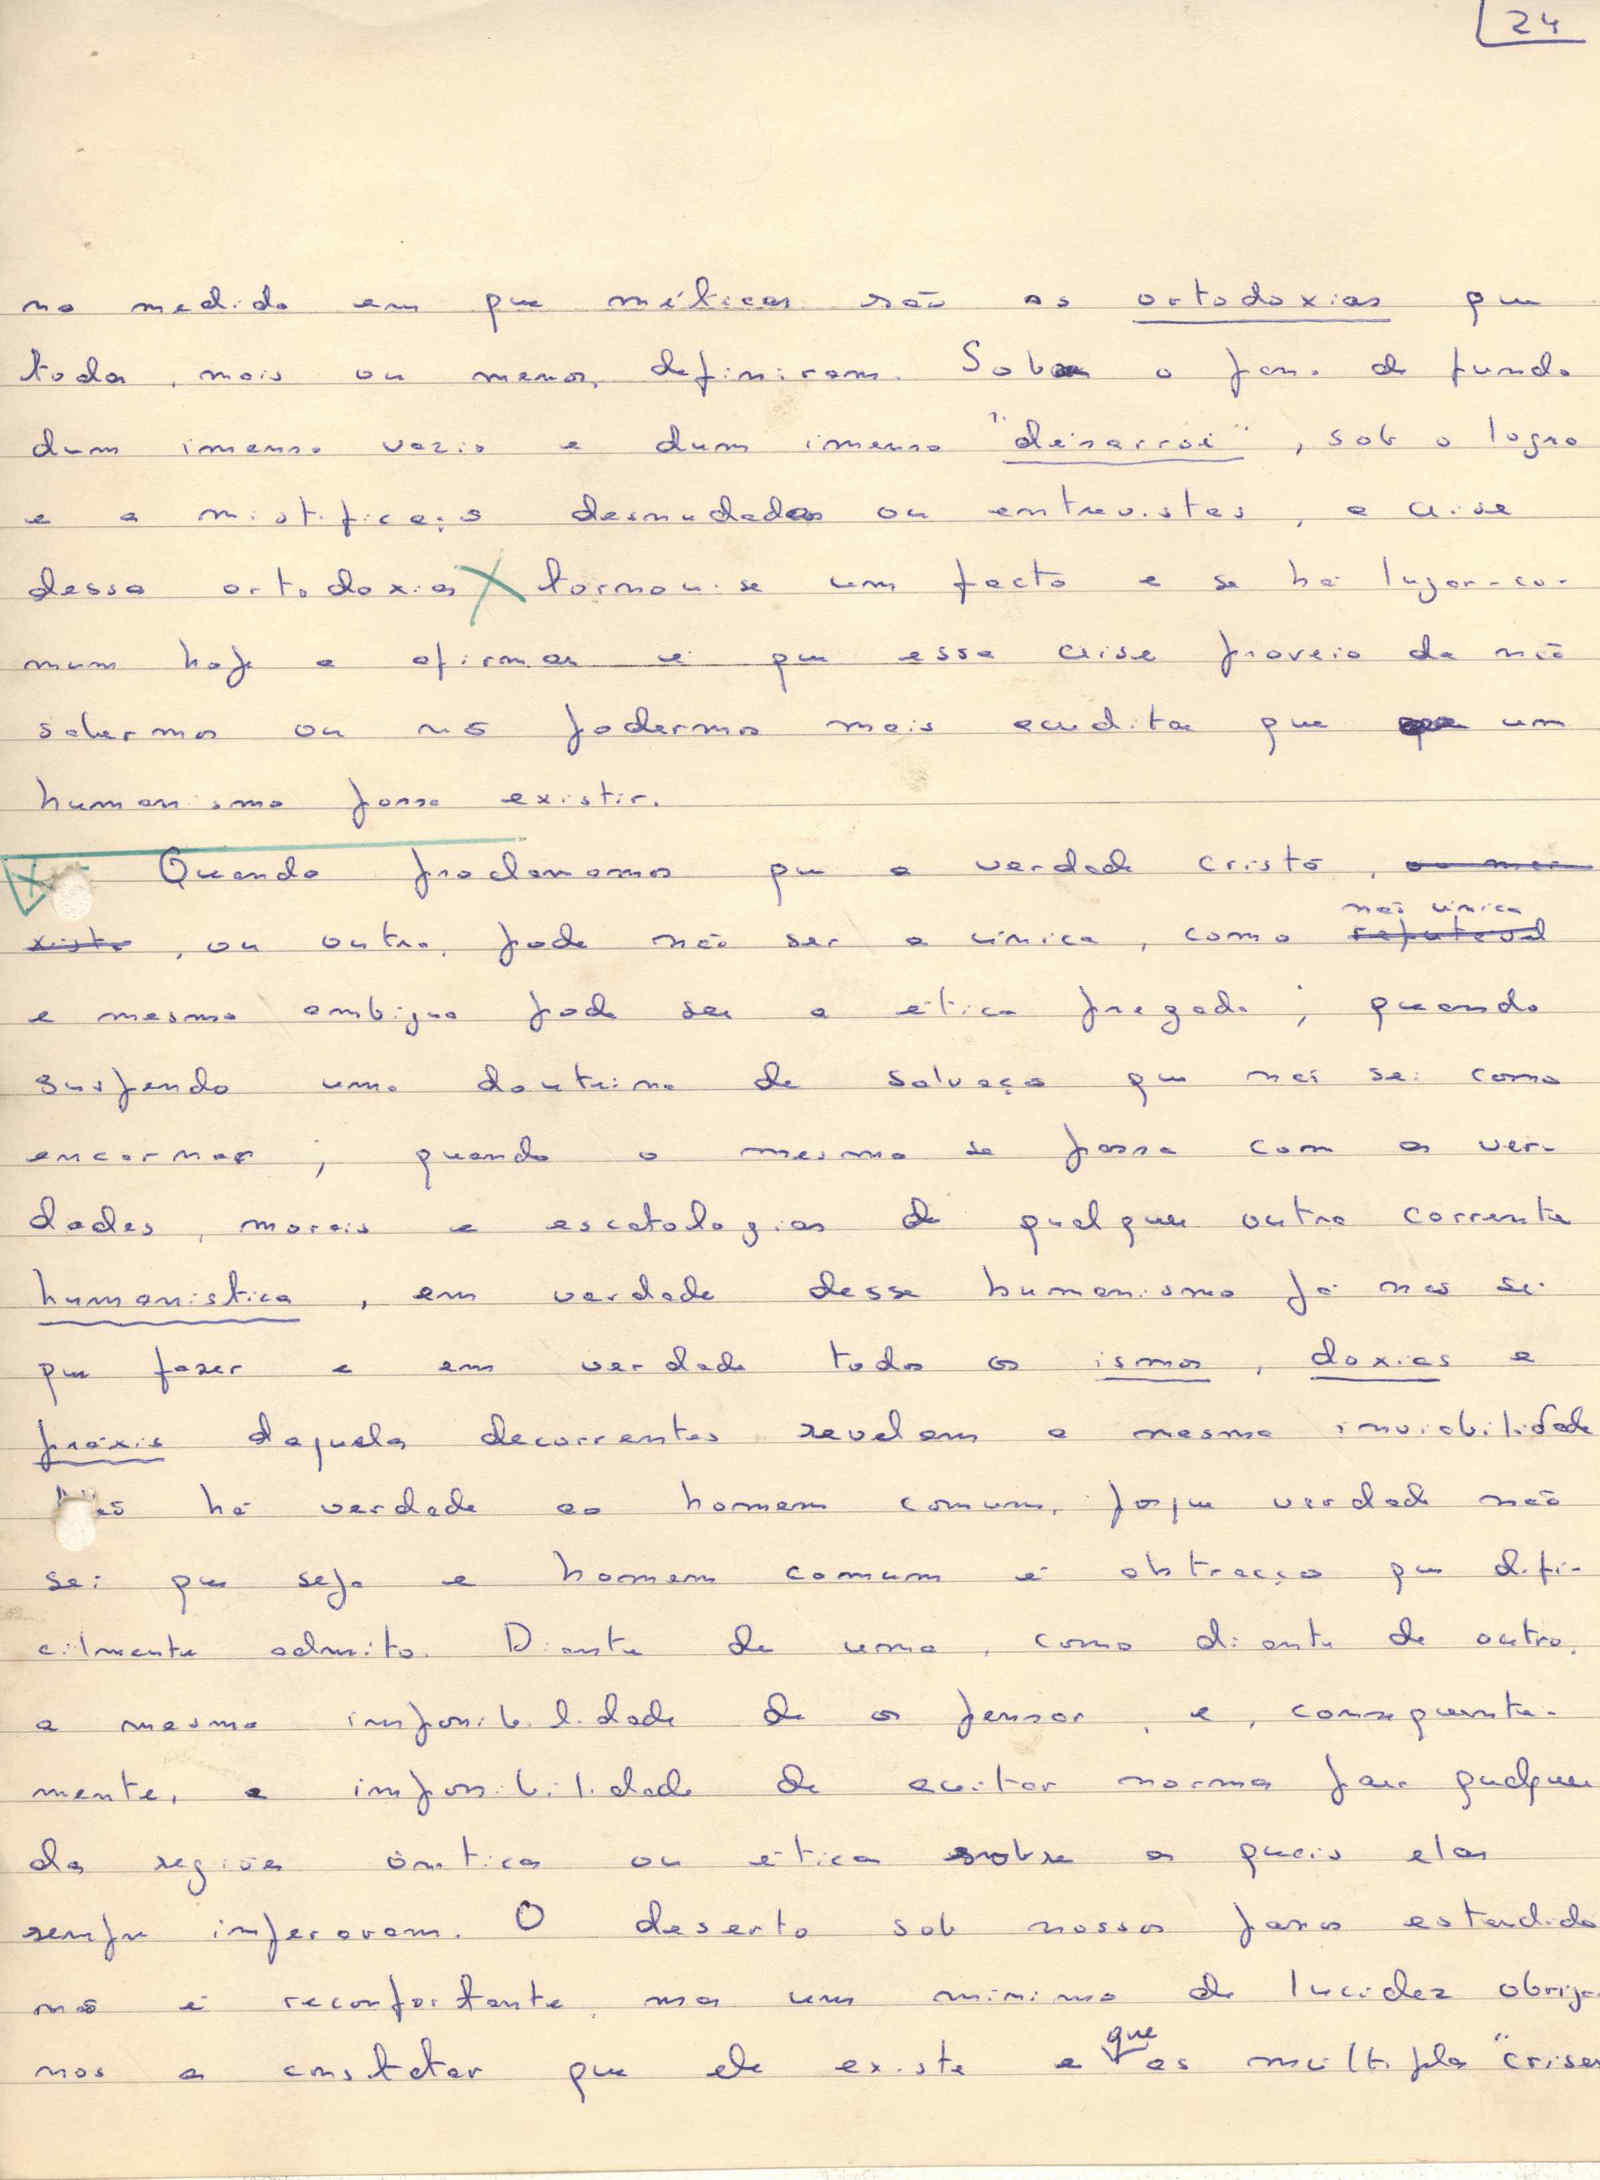 24
na medida em que míticas são as ortodoxias que
todos, mais ou menos, definiram. Sob o pano de fundo
dum imenso vazio e dum imenso "désarroi", sob o logro
e a mistificação desnudados ou entrevistos, a crise
dessas ortodoxias tornou-se um facto e se há lugar-co-
mum hoje a afirmar é que essa crise proveio de não
sabermos ou não podermos mais acreditar que um
humanismo possa existir.
Quando proclamamos que a verdade cristã, ou mar-
xista, ou outra, pode não ser a única, como não única
reputável
e mesmo ambígua pode ser a ética pregada; quando
suspendo uma doutrina de salvação que não sei como
encarnar; quando o mesmo se passa com as ver-
dades, morais e escatologias de qualquer outra corrente
humanística, em verdade desse humanismo já não sei
que fazer e em verdade todos os ismos, doxias e
práxis daqueles decorrentes revelam a mesma inviabilidade
Não há verdade ao homem comum, porque verdade não
sei que seja e homem comum é abstracção que difi-
cilmente admito. Diante de uma, como diante de outro,
a mesma impossibilidade de os pensar, e, consequente-
mente, a impossibilidade de aceitar normas para qualquer
das regiões ônticas ou éticas sobre as quais elas
sempre imperavam. O deserto sob nossos passos estendido
não é reconfortante, mas um mínimo de lucidez obriga-
nos a constatar que ele existe e que as múltiplas "crises